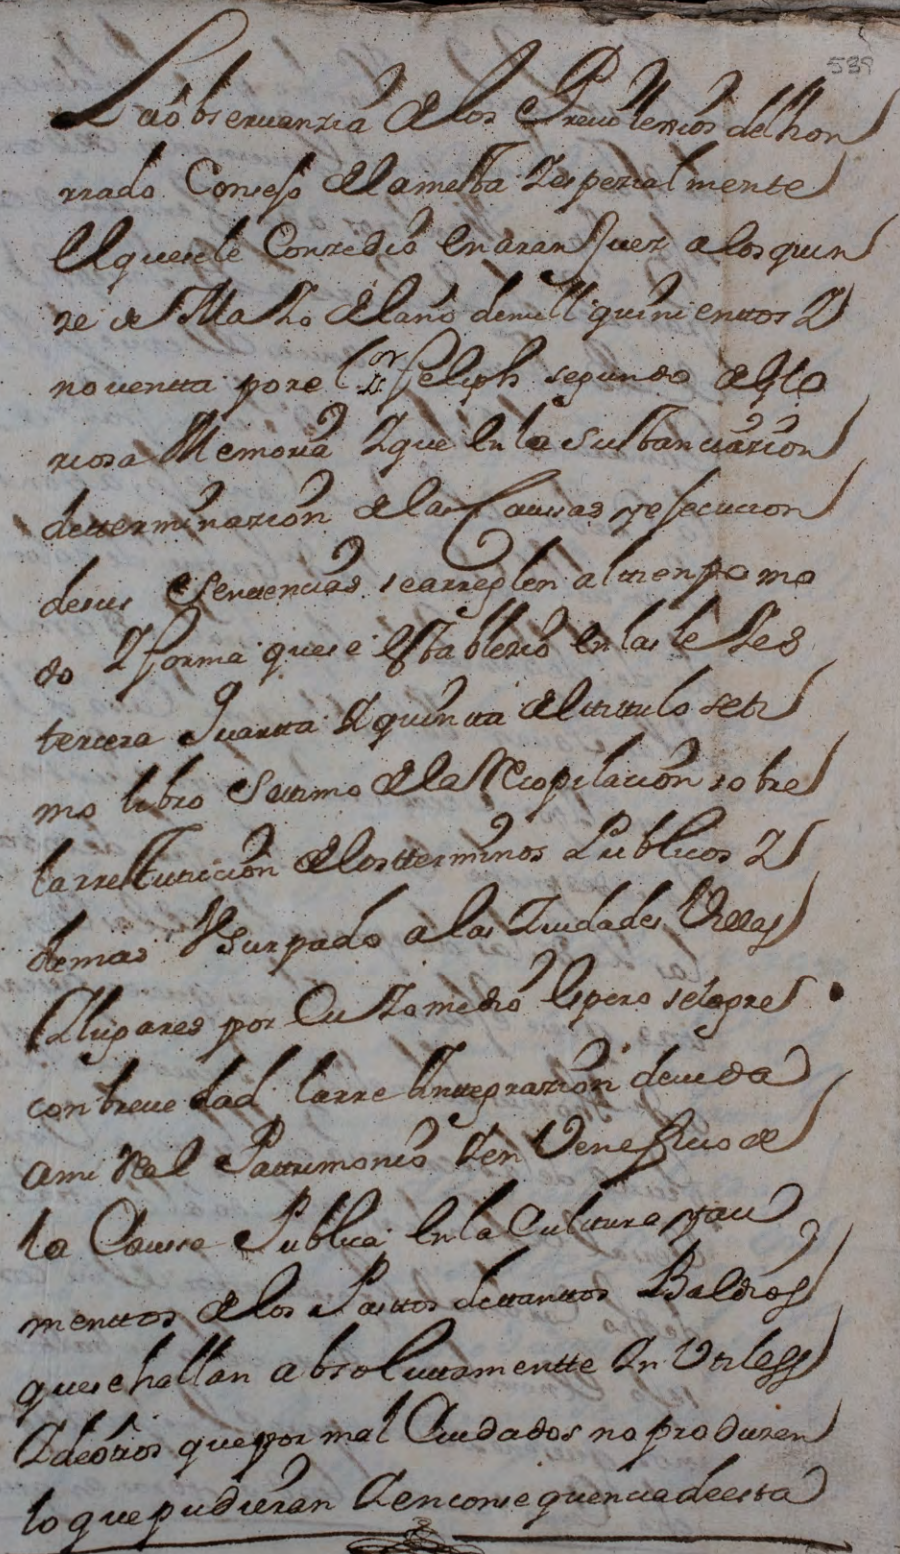 539
La observanzia de los Previlexios del hon
rrado Consejo de la mesta Y espezialmente
el que se le Conzedio en aranJuez a los quin
ze de Maio de el año de mill quinienttos Y
noventta por el Sor Dn Feliph segundo de glo
riosa Memoria Y que en la Substanciazion
determinazion de las Caussas y ejecucion
de sus Sentencias se arreglen al tienpo mo
do Y forma que se establezio en las leies
tercera Quartta Y quintta del titulo seti
mo libro Settimo de la Recopilacion sobre
la rrestituicion de los tterminos Publicos Y
demas Usurpado a las Ziudades Villas
Y lugares por Cuio medio espero se logre
con brevedad la rreinttegrazion devida
a mi Real Pattrimonio Y en Veneficio de
la Caussa Publica en la Culttura y au
menttos de los Pasttos de ttanttos Baldios
que se hallan absoluttamentte Inutiless
Y de ottros que por mal Cuidados no produzen
lo que pudieran Y en consequencia de esta